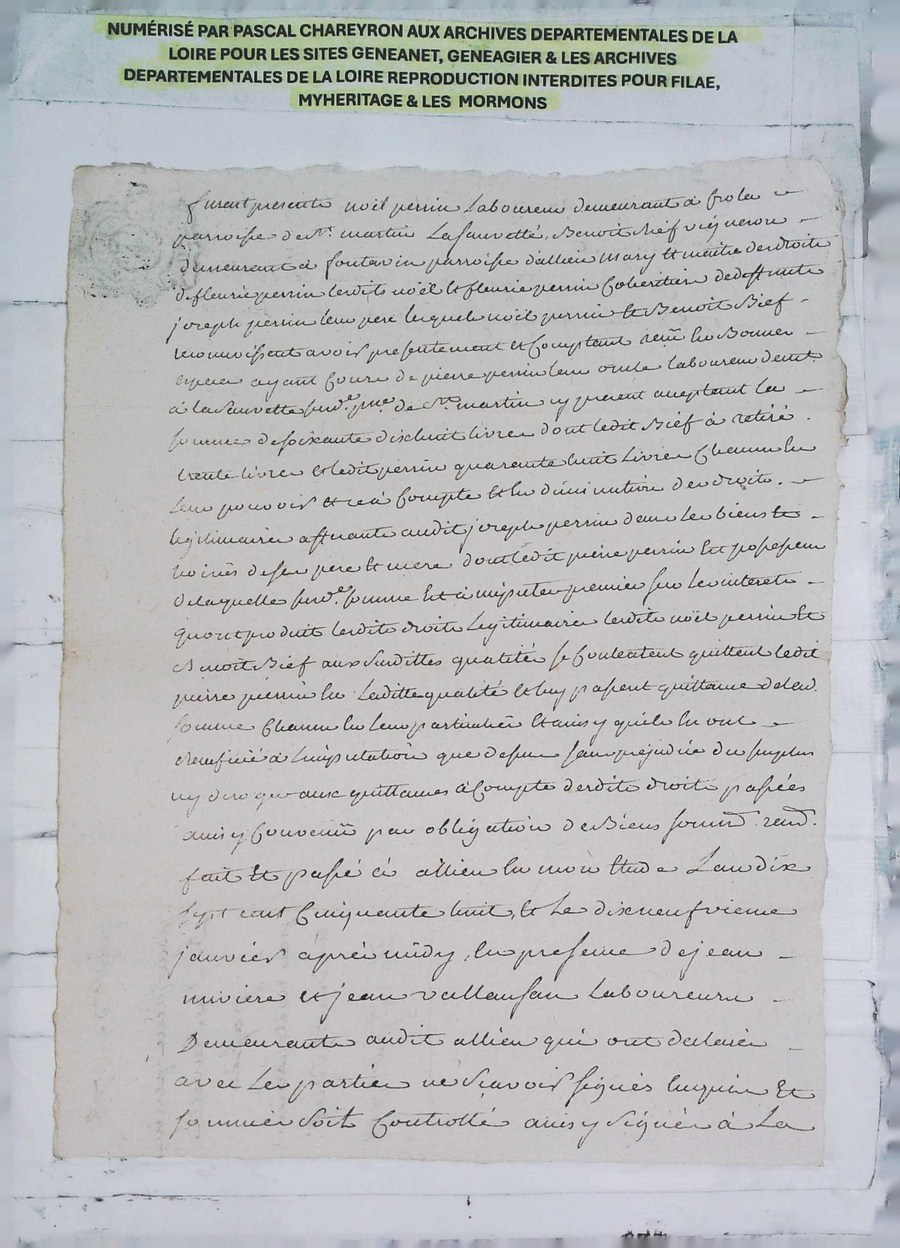 NUMÉRISÉ PAR PASCAL CHAREYRON AUX ARCHIVES DEPARTEMENTALES DE LA
LOIRE POUR LES SITES GENEANET, GENEAGIER & LES ARCHIVES
DEPARTEMENTALES DE LA LOIRE REPRODUCTION INTERDITES POUR FILAE,
MYHERITAGE & LES MORMONS
furent presents noël perrin Laboureur demeurant à
parroisse de St martin La Sauvetté, Benoit Rief vigneron
demeurant à fontavin parroisse d'allieu mary et maitre des droits
de fleurie perrin lesdits noël et fleurie perrin Coheritiers de deffunt
joseph perrin leur pere lequels noël perrin et Benoit Rief
reconnoissent avoir presentement et Comptant reçu en Bonnes
especes ayant Cours de pierre perrin leur oncle laboureur demt
à la Sauvette susd.e de St martin y present aceptant la
somme de soixante dixhuit livres dont ledit Rief à retiré
trente livres et ledit perrin quarente huit Livres Chacun en
leur pouvoir et ce à Compte et en diminution des droits
legitimaires afferants audit joseph perrin dans les biens et
hoiries de ses pere et mere dont ledit pierre perrin est possesseur
de laquelle susd.e somme est à imputer premier sur les interets
qu'ont produit lesdits droits Legitimaires lesdits noël perrin et
Benoit Rief aux Susdittes qualités se Contentent quittent ledit
pierre perrin en Laditte qualité et luy passent quittance de lad.
somme Chacun en Leur particulier et ainsy qu'ils en ont
à l'imputation que dessus sans prejudice du surplus
ny des autres quittances à Compte desdits droits passées
ainsy Convenu par obligation de Biens soumis. renon.
fait et passé à allieu en mon Etude L'an dix
sept cent Cinquante huit, et Le dixneufvieme
janvier après midy, en presence de jean
et jean Laboureurs
Demeurants audit allieu qui ont declarés
avec Les parties ne Scavoir signer enquis et
sommés Soit Controllé ainsy Signé à La